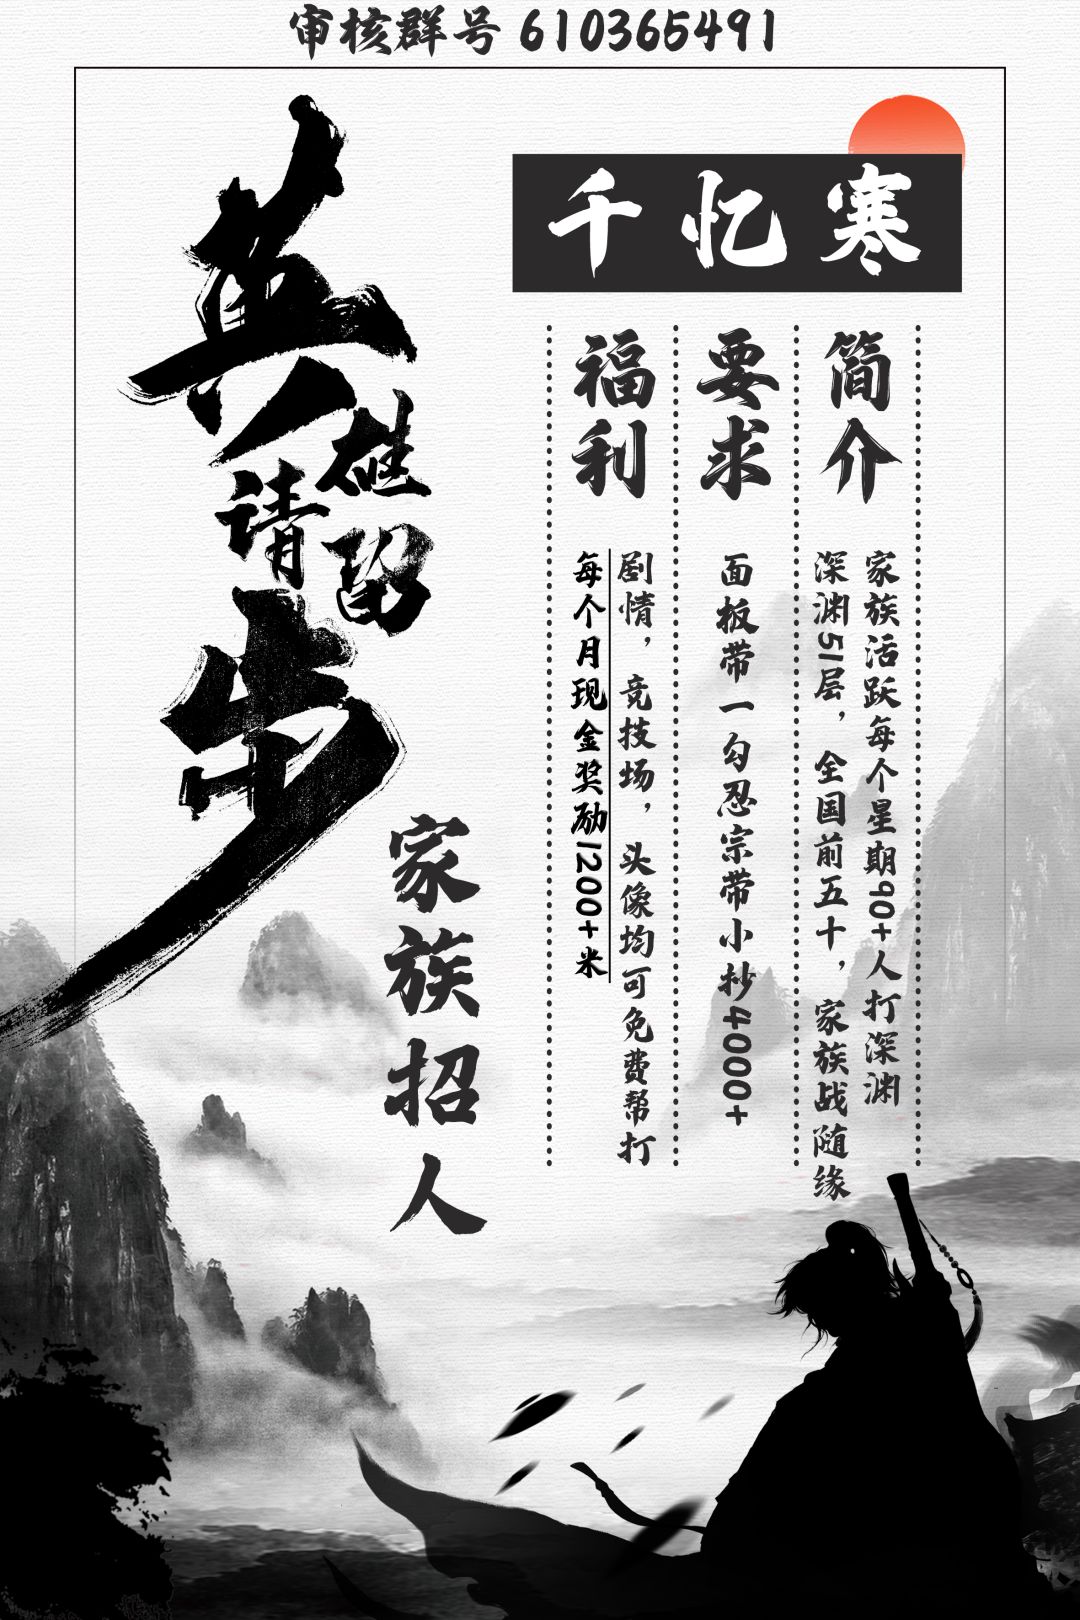 审核群号 610365491
英雄请留步
家族招人
千忆寒
简介
家族活跃每个星期90+人打深渊
深渊51层，全国前五十，家族战随缘
要求
面板带一勾忍宗带小抄4000+
福利
剧情，竞技场，头像均可免费帮打
每个月现金奖励1200+米